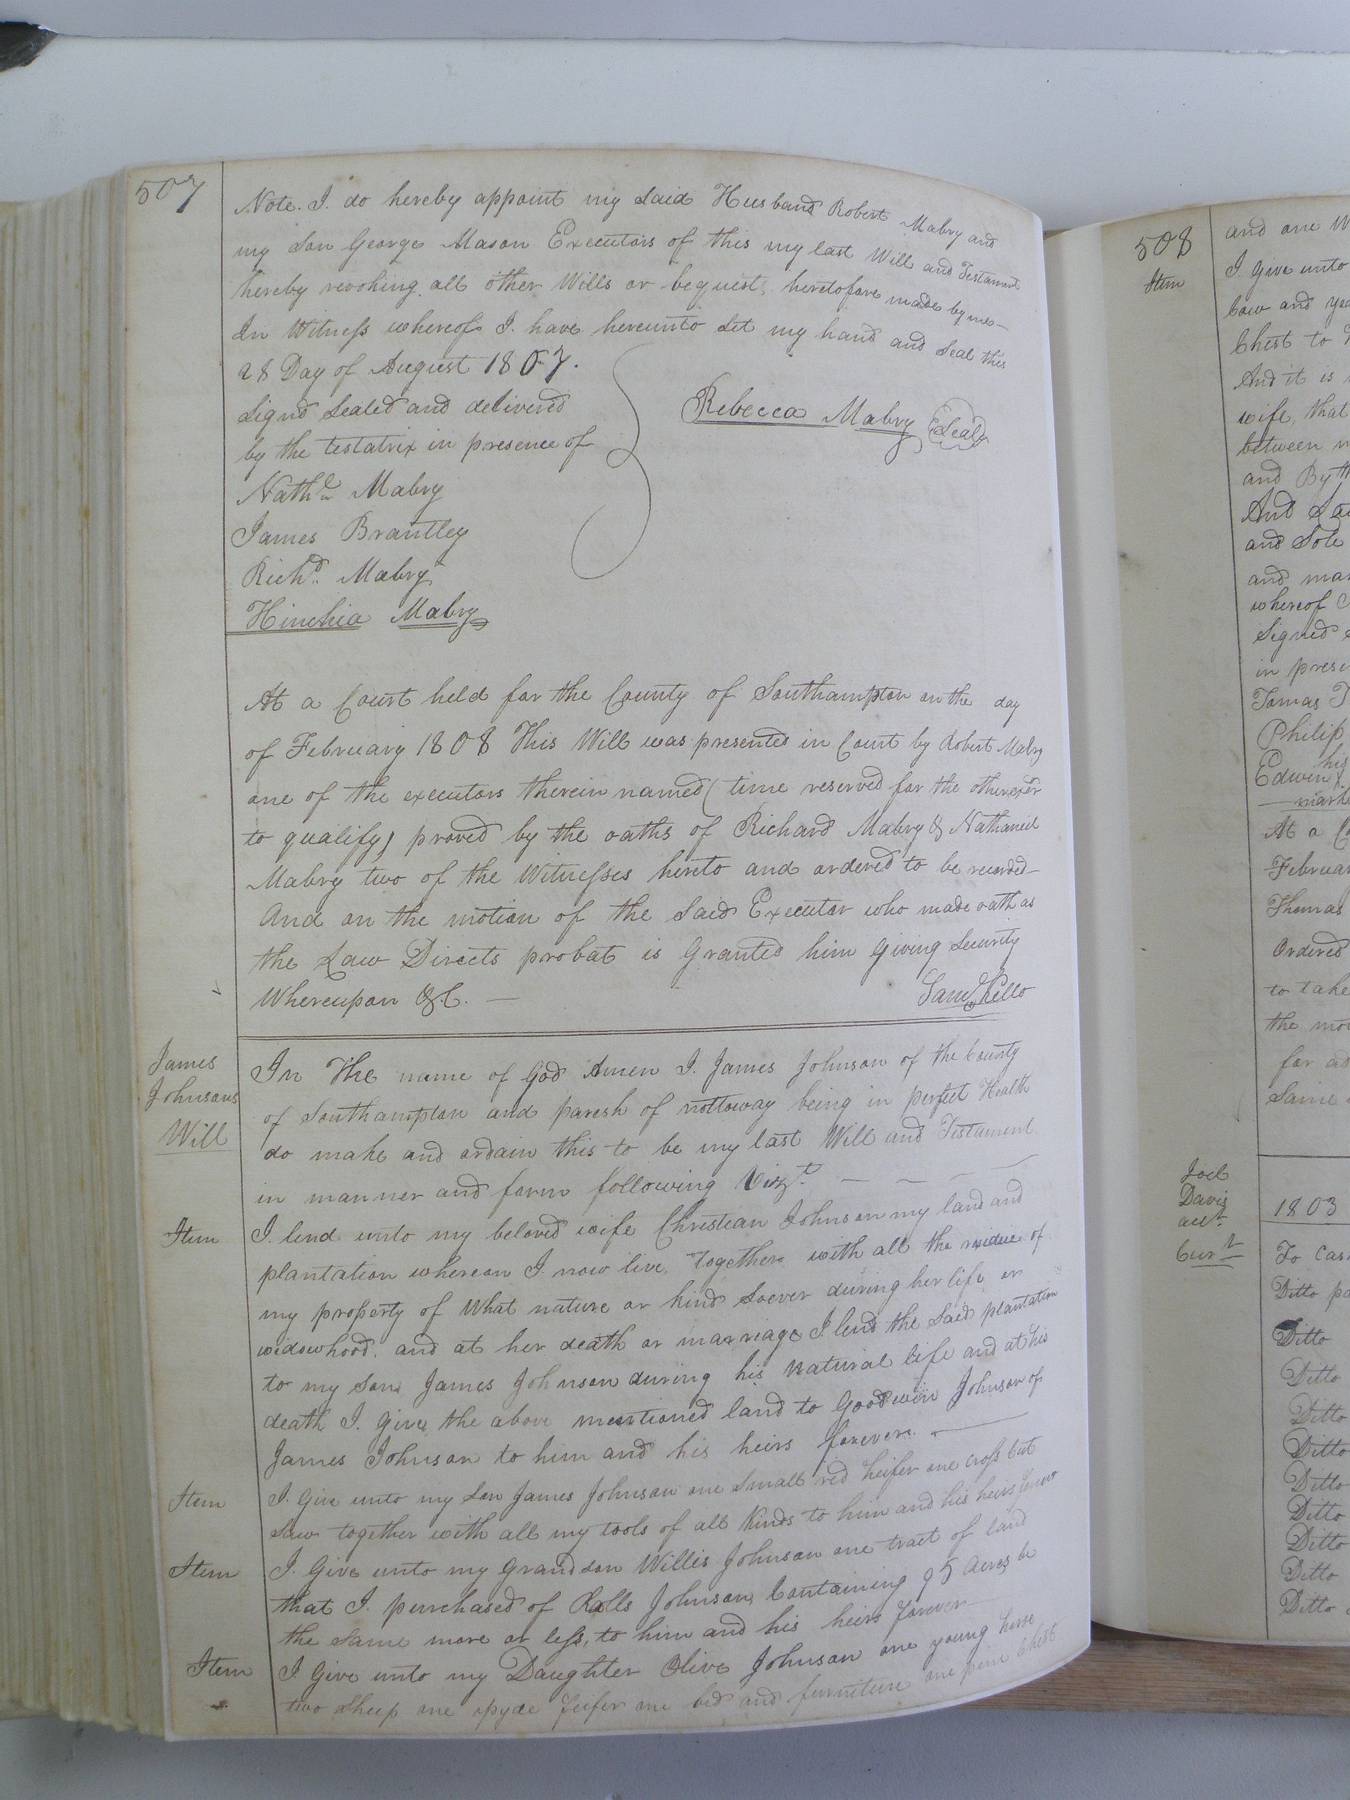 507
Note. I. do hereby appoint my Said Husband Robert Mabry and
my Son George Mason Executors of this my last Will and Testament
hereby revoking all other Wills or bequests heretofore made by me—
In Witness whereof I. have hereunto Set my hand and Seal this
28 Day of August 1807.
Signd Sealed and delivered
by the testatrix in presence of
Rebecca Mabry Seal
Nathl Mabry
James Brantley
Richd. Mabry
Hinchia Mabry
At a Court held for the County of Southampton on the day
of February 1808 This Will was presented in Court by Robert Mabry
one of the executors therein named (time reserved for the other exor
to qualify) proved by the oaths of Richard Mabry & Nathaniel
Mabry two of the Witnesses hereto and ordered to be recorded—
And on the motion of the Said Executor who made oath as
the Law Directs probat is Granted him Giving Security
Whereupon &C. —
Saml Kello
James
Johnsons
Will
In The name of God Amen I. James Johnson of the County
of Southampton and paresh of nottoway being in perfect Health
do make and ordain this to be my last Will and Testament
in manner and form following Vizt. — — —
Item I. lend unto my beloved wife Christian Johnson my land and
plantation whereon I. now live, Together with all the residue of
my property of What nature or kind Soever during her life or
widowhood. and at her death or marriage I lend the Said plantation
to my Son James Johnson during his natural life and at his
death I. Give the above mentioned land to Goodwin Johnson of
James Johnson to him and his heirs forever. —
Item I. Give unto my Son James Johnson one Small red heifer one cross cut
Saw together with all my tools of all Kinds to him and his heirs forever
Item I. Give unto my Grandson Willis Johnson one tract of land
that I. purchased of Ralls Johnson Containing 95 Acres be
the Same more or less, to him and his heirs forever—
Item I Give unto my Daughter Olive Johnson one young horse
two Sheep one heifer one bed and furniture one pine Chest
508
and one
Item I. Give unto
Cow and
Chest to
And it is
wife, that
between
and By
And
and Sole
and
whereof
Signed
in
Philip
his
Edwin X
mark
At a
Thomas
Ordered
to take
the
for as
Same
Joel
Davis
acct
Curt
1803
To
Ditto
Ditto
Ditto
Ditto
Ditto
Ditto
Ditto
Ditto
Ditto
Ditto